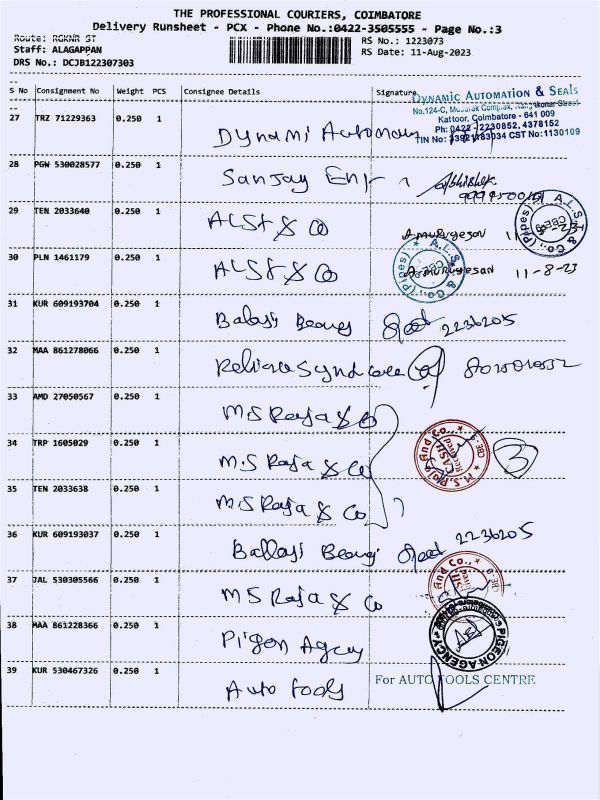 THE PROFESSIONAL COURIERS, COIMBATORE
Delivery Runsheet - PCX - Phone No.:0422-3505555 - Page No.:3
Route: RGKNR ST
RS No.: 1223073
Staff: ALAGAPPAN
RS Date: 11-Aug-2023
DRS No.: DCJB122307303
S No Consignment No Weight PCS Consignee Details Signature
DYNAMIC AUTOMATION & SEALS
No.124-C, Mubarak Complex, Street
Kattoor, Coimbatore - 641 009
Ph: 0422-2230852, 4378152
TIN No: 33921783034 CST No: 1130109
27 TRZ 71229363 0.250 1 Dynami
28 PGW 530028577 0.250 1 Sanjay Abhishek
29 TEN 2033640 0.250 1 ALSt & Co A.muruyesan
A.L.S.T & Co., (Pipes) CBE-9
30 PLN 1461179 0.250 1 ALSt & Co A.muruyesan 11-8-23
A.L.S.T & Co., (Pipes) CBE-9
31 KUR 609193704 0.250 1 Balaji 2236205
32 MAA 861278066 0.250 1 Reliace Syndicate
33 AMD 27050567 0.250 1 M.S Raja & Co
34 TRP 1605029 0.250 1 M.S Raja & Co 3
M.S. Raja And Co., CBE-9 CASH Received
35 TEN 2033638 0.250 1 M.S Raja & Co
36 KUR 609193037 0.250 1 Ballaji 2236205
37 JAL 530305566 0.250 1 M S Raja & Co
And Co., CBE-9
38 MAA 861228366 0.250 1 Pigon Agcy
PIGEON AGENCY
39 KUR 530467326 0.250 1 Auto Tools
For AUTO TOOLS CENTRE